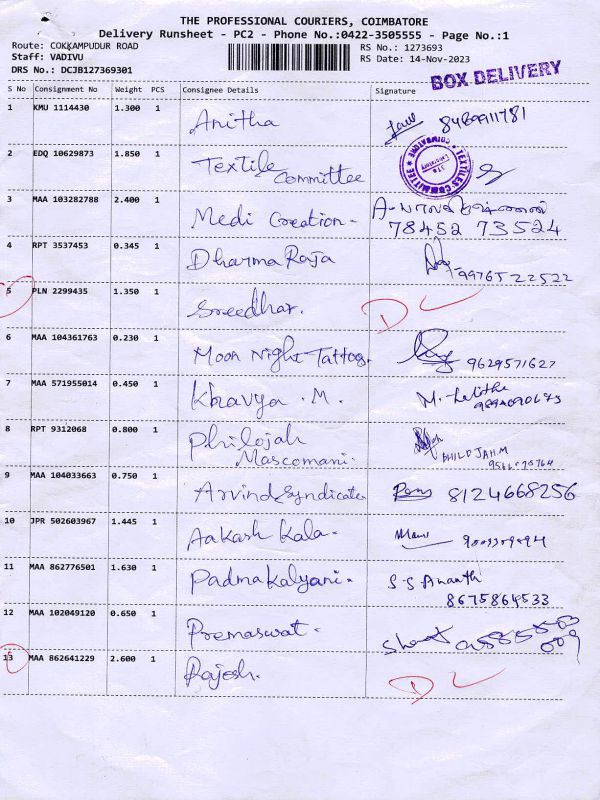 THE PROFESSIONAL COURIERS, COIMBATORE
Delivery Runsheet - PC2 - Phone No.:0422-3505555 - Page No.:1
Route: COKKAMPUDUR ROAD RS No.: 1273693
Staff: VADIVU RS Date: 14-Nov-2023
DRS No.: DCJB127369301 BOX DELIVERY
S No Consignment No Weight PCS Consignee Details Signature
1 KMU 1114430 1.300 1 Anitha
2 EDQ 10629873 1.850 1 Textile Committee
TEXTILES COMMITTEE COIMBATORE
3 MAA 103282788 2.400 1 Medi Creation -
78452 73524
4 RPT 3537453 0.345 1 Dharma Raja 9976522522
5 PLN 2299435 1.350 1 Sreedhar. D
6 MAA 104361763 0.230 1 Moon Night Tattoo. 9629571627
7 MAA 571955014 0.450 1 Khavya . M. M. Lalitha
8 RPT 9312068 0.800 1 Philojah Mascomani.
9 MAA 104033663 0.750 1 Arvind Syndicate 8124668256
10 JPR 502603967 1.445 1 Aakash Kala -
11 MAA 862776501 1.630 1 Padma Kalyani - S S Ananth
8675864533
12 MAA 102049120 0.650 1 Premaswat -
13 MAA 862641229 2.600 1 Rajesh. D